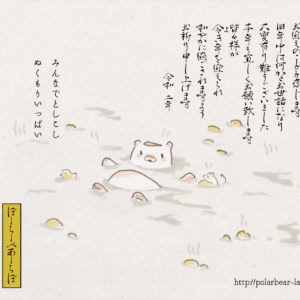 旧年中は何かとお世話になり
大変有り難うございました
本年も宜しくお願い致します
皆々様が
幸き年を迎えられ
和やかに過ごされますよう
お祈り申し上げます
令和二年
みんなでとしこし
ぬくもりいっぱい
ぽーらーべあーらぼ
http://polarbear-la